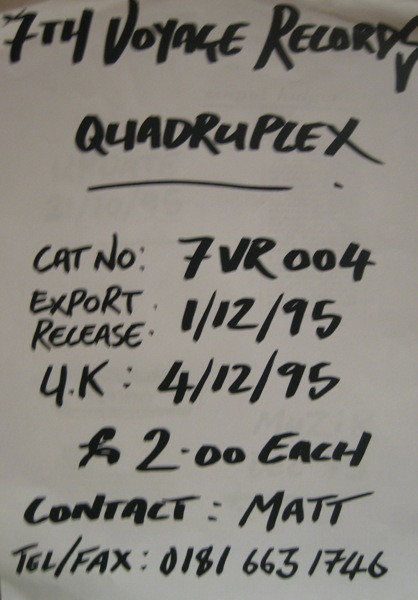 7TH VOYAGE RECORDS
QUADRUPLEX
CAT NO: 7VR004
EXPORT
RELEASE. 1/12/95
U.K: 4/12/95
£2.00 EACH
CONTACT: MATT
TEL/FAX: 0181 663 1746